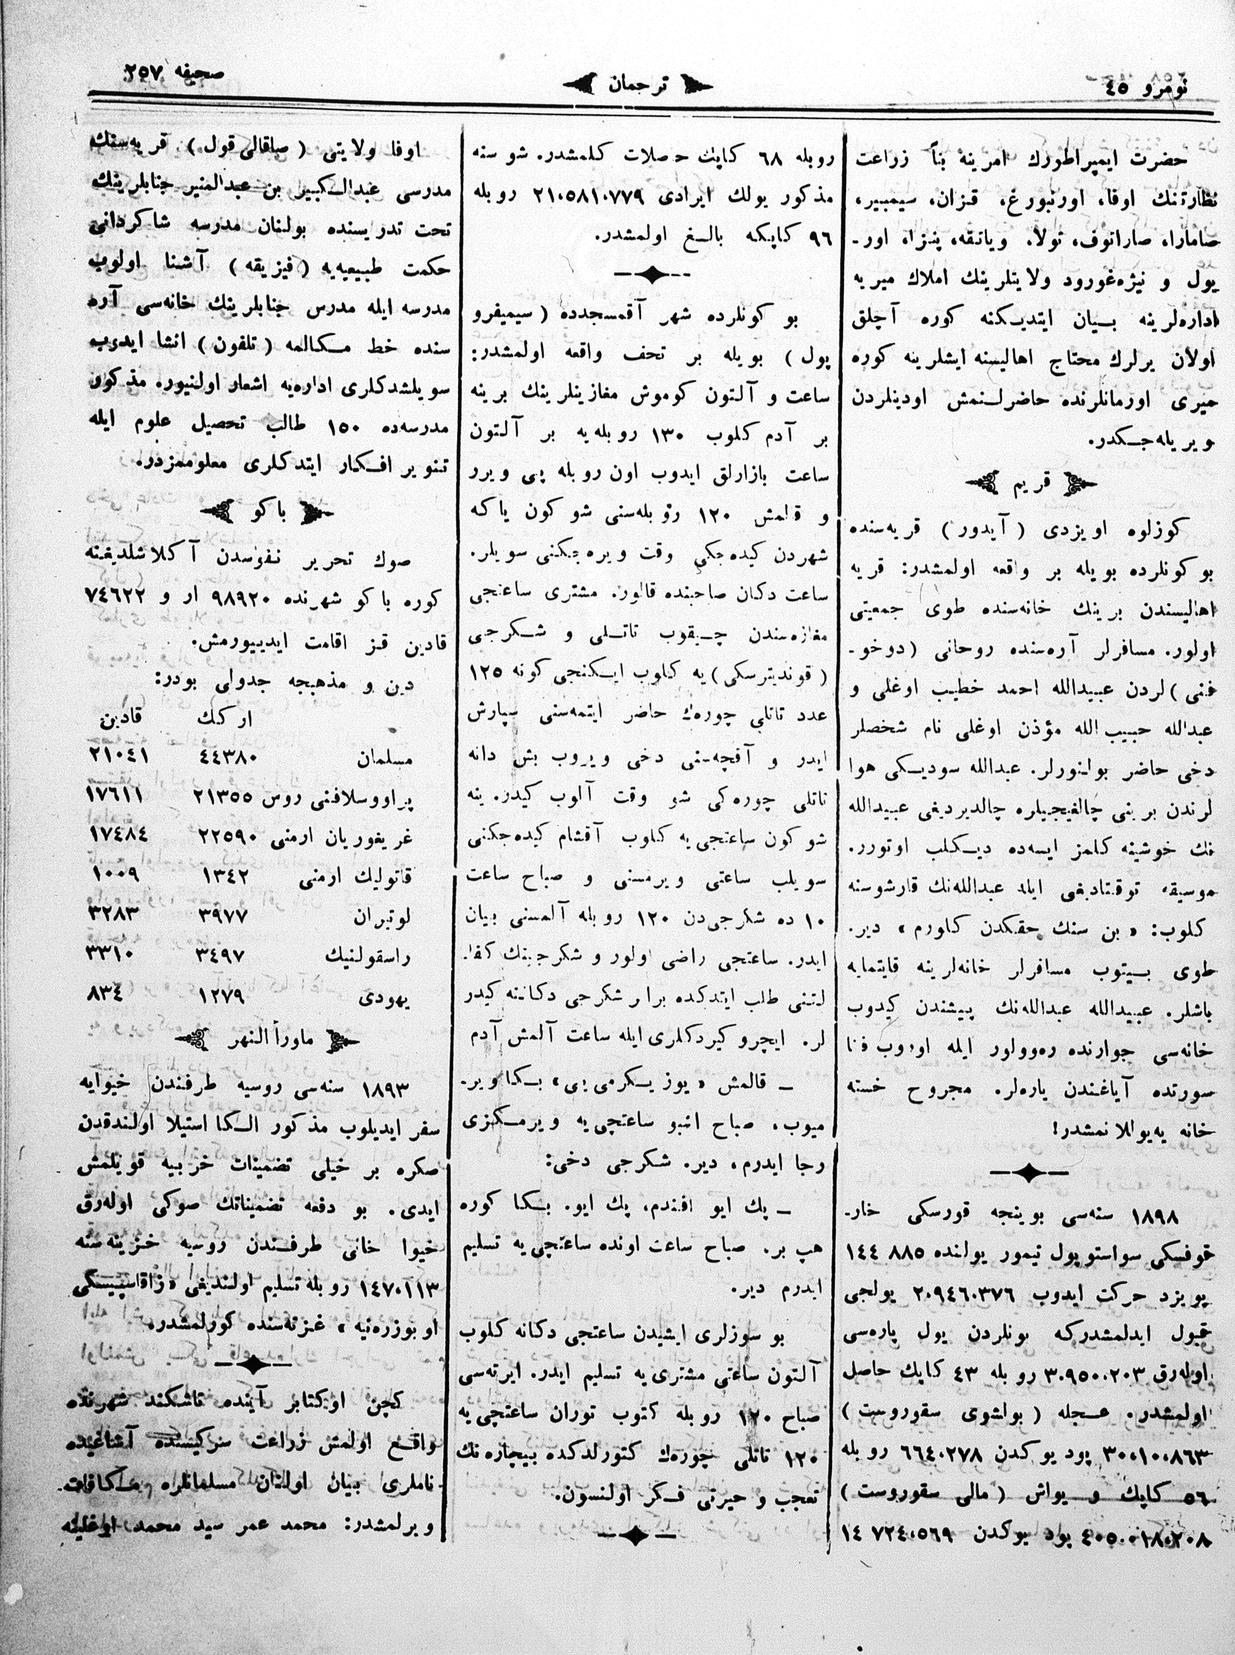 نومرو ٤٥
ترجمان
صحيفه ٢٥٧
حضرت ايمپراطورك امرينه بناً زراعت
نظارتنك اوفا، اورنبورغ، قزان، سيمبير،
صامارا، صاراتوف، تولا، وياتقه، پنزا، اور-
يول و نيژەغورود ولايتلرينك املاك ميريه
ادارەلرينه بيان ايتديكنه كوره آچلق
اولان يرلرك محتاج اهاليسنه ايشلرينه كوره
ميرى اورمانلرنده حاضرلنمش اودينلردن
ويريله‌جكدر.
قريم
كوزلوه اويزدى (آيدور) قريه‌سنده
بو كونلرده بويله بر واقعه اولمشدر: قريه
اهاليسندن برينك خانه‌سنده طوى جمعيتى
اولور. مسافرلر آره‌سنده روحانى (دوخو-
غنى) لردن عبيدالله احمد خطيب اوغلى و
عبدالله حبيب الله مؤذن اوغلى نام شخصلر
دخى حاضر بولنورلر. عبدالله سوديكى هوا
لرندن برينى چالغيجيلره چالديرديغى عبيدالله
نك خوشينه كلمز ايسه‌ده ديكلب اوتورر.
موسيقه توقتاديغى ايله عبدالله‌نك قارشوسنه
كلوب: «بن سنك حقكدن كلورم» دير.
طوى بيتوب مسافرلر خانه‌لرينه قايتمايه
باشلر. عبيدالله عبدالله‌نك پيشندن كيدوب
خانه‌سى جوارنده ره‌وولور ايله اوروب فنا
سورتده آياغندن ياره‌لر. مجروح خسته
خانه يه يوللانمشدر!
١٨٩٨ سنه‌سى بوينجه قورسكى خار-
قوفسكى سواستوپول تيمور يولنده ٨٨٥ ١٤٤
پويزد حركت ايدوب ٢٠٩٤٦٠٣٧٦ يولجى
قبول ايدلمشدركه بونلردن يول پاره‌سى
اوله‌رق ٣٠٩٥٠٠٢٠٣ روبله ٤٣ كاپك حاصل
اولمشدر. عجله (بولشوى سقوروست)
٣٠٠١٠٠٨٦٣ پود يوكدن ٦٦٤٠٢٧٨ روبله
٥٦ كاپك و يواش (مالى سقوروست)
٤٠٥٠٠١٨٠٢٠٨ پود يوكدن ٧٢٤٠٥٦٩ ١٤
روبله ٦٨ كاپك حاصلات كلمشدر. شو سنه
مذكور يولك ايرادى ٢١٠٥٨١٠٧٧٩ روبله
٩٦ كاپكه بالغ اولمشدر.
بو كونلرده شهر آقمسجدده (سيميفرو
پول) بويله بر تحف واقعه اولمشدر:
ساعت و آلتون كوموش مغازينلرينك برينه
بر آدم كلوب ١٣٠ روبله‌يه بر آلتون
ساعت بازارلق ايدوب اون روبله پى ويرر
و قالمش ١٢٠ روبله‌سنى شو كون ياكه
شهردن كيده‌جكى وقت ويره‌جكنى سويلر.
ساعت دكان صاحبنده قالور. مشترى ساعتجى
مغازه‌سندن چيقوب تاتلى و شكرجى
(قونديترسكى) يه كلوب ايكنجى كونه ١٢٥
عدد تاتلى چوره‌ك حاضر ايتمه‌سنى سپارش
ايدر و آقچه‌سنى دخى ويروب بش دانه
تاتلى چوره‌كى شو وقت آلوب كيدر. ينه
شو كون ساعتجى يه كلوب آقشام كيده‌جكنى
سويلب ساعتى ويرمسنى و صباح ساعت
١٠ ده شكرجى‌دن ١٢٠ روبله آلمسنى بيان
ايدر. ساعتجى راضى اولور و شكرجينك كفا-
لتنى طلب ايتدكده برابر شكرجى دكاننه كيدر
لر. ايچرو كيردكلرى ايله ساعت آلمش آدم
— قالمش «يوز يكرمى يى» بكا وير-
ميوب، صباح اشبو ساعتچى يه ويرمكزى
رجا ايدرم، دير. شكرجى دخى:
— پك ايو افندم، پك ايو. بكا كوره
هپ بر. صباح ساعت اونده ساعتچى يه تسليم
ايدرم دير.
بو سوزلرى ايشيدن ساعتجى دكانه كلوب
آلتون ساعتى مشترى يه تسليم ايدر. ايرته‌سى
صباح ١٢٠ روبله كتوب توران ساعتچى يه
١٢٠ تاتلى چوره‌ك كتورلدكده بيچاره‌نك
تعجب و حيرتى فكر اولنسون.
اوفا ولايتى (صباقالى قول) قريه‌سنك
مدرسى عبدالكبير بن عبدالمنير جنابلرينك
تحت تدريسنده بولنان مدرسه شاكردانى
حكمت طبيعيه‌يه (فيزيقه) آشنا اولوب
مدرسه ايله مدرس جنابلرينك خانه‌سى آره
سنده خط مكالمه (تلفون) انشا ايدوب
سويلشدكلرى اداره‌يه اشعار اولنيور. مذكور
مدرسه‌ده ١٥٠ طالب تحصيل علوم ايله
تنوير افكار ايتدكلرى معلوممزدر.
باكو
صوك تحرير نفوسدن آكلاشلديغنه
كوره باكو شهرنده ٩٨٩٢٠ ار و ٧٤٦٢٢
قادين قز اقامت ايدييورمش.
دين و مذهبجه جدولى بودر:
اركك قادين
مسلمان ٤٤٣٨٠ ٢١٠٤١
پراووسلافنى روس ٢١٣٥٥ ١٧٦١١
غريغوريان ارمنى ٢٢٥٩٠ ١٧٤٨٤
قاتوليك ارمنى ١٣٤٢ ١٠٠٩
لوتيران ٣٩٧٧ ٣٢٨٣
راسقولنيك ٣٤٩٧ ٣٣١٠
يهودى ١٢٧٩ ٨٣٤
ماورأ النهر
١٨٩٣ سنه‌سى روسيه طرفندن خيوايه
سفر ايديلوب مذكور الكا استيلا اولندقدن
صكره بر خيلى تضمينات حربيه قويلمش
ايدى. بو دفعه تضميناتك صوكى اوله‌رق
خيوا خانى طرفندن روسيه خزينه‌سنه
١٤٧٠١١٣ روبله تسليم اولنديغى «زاقاسپيسكى
اوبوزره‌نيه» غزته‌سنده كورلمشدر.
كچن اوكتابر آينده تاشكند شهرنده
واقع اولمش زراعت سركيسنده آشاغيده
ناملرى بيان اولنان مسلمانلره مكافات
ويرلمشدر: محمد عمر سيد محمد اوغلينه